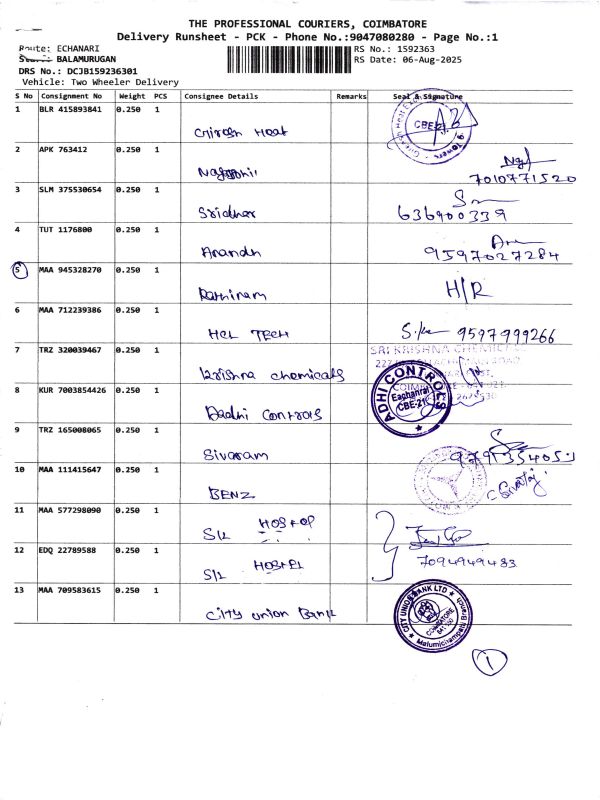 THE PROFESSIONAL COURIERS, COIMBATORE
Delivery Runsheet - PCK - Phone No.:9047080280 - Page No.:1
Route: ECHANARI
RS No.: 1592363
BALAMURUGAN
RS Date: 06-Aug-2025
DRS No.: DCJB159236301
Vehicle: Two Wheeler Delivery
S No Consignment No Weight PCS Consignee Details Remarks Seal & Signature
1 BLR 415893841 0.250 1
Girish Heat
CBE-21
2 APK 763412 0.250 1
7010771520
3 SLM 375530654 0.250 1
Sridhar 636900339
4 TUT 1176800 0.250 1
Anandh 9597027284
5 MAA 945328270 0.250 1
Rathinam H/R
6 MAA 712239386 0.250 1
HCL TECH 9597999266
7 TRZ 320039467 0.250 1
SRI KRISHNA CHEMICALS
Krishna chemicals
8 KUR 7003854426 0.250 1
ADHI CONTROLS
Eachanari
CBE-21
Aadhi Controls
9 TRZ 165008065 0.250 1
Sivaram
10 MAA 111415647 0.250 1
BENZ
11 MAA 577298090 0.250 1
12 EDQ 22789588 0.250 1
7094949483
13 MAA 709583615 0.250 1
City union Bank
CITY UNION BANK LTD
COIMBATORE
1